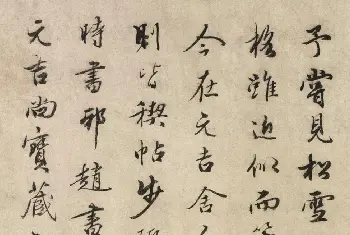 予嘗見松雪
格雖近似而
今在元吉舍
則皆稧帖步
時書邪趙書
元吉尚寶藏